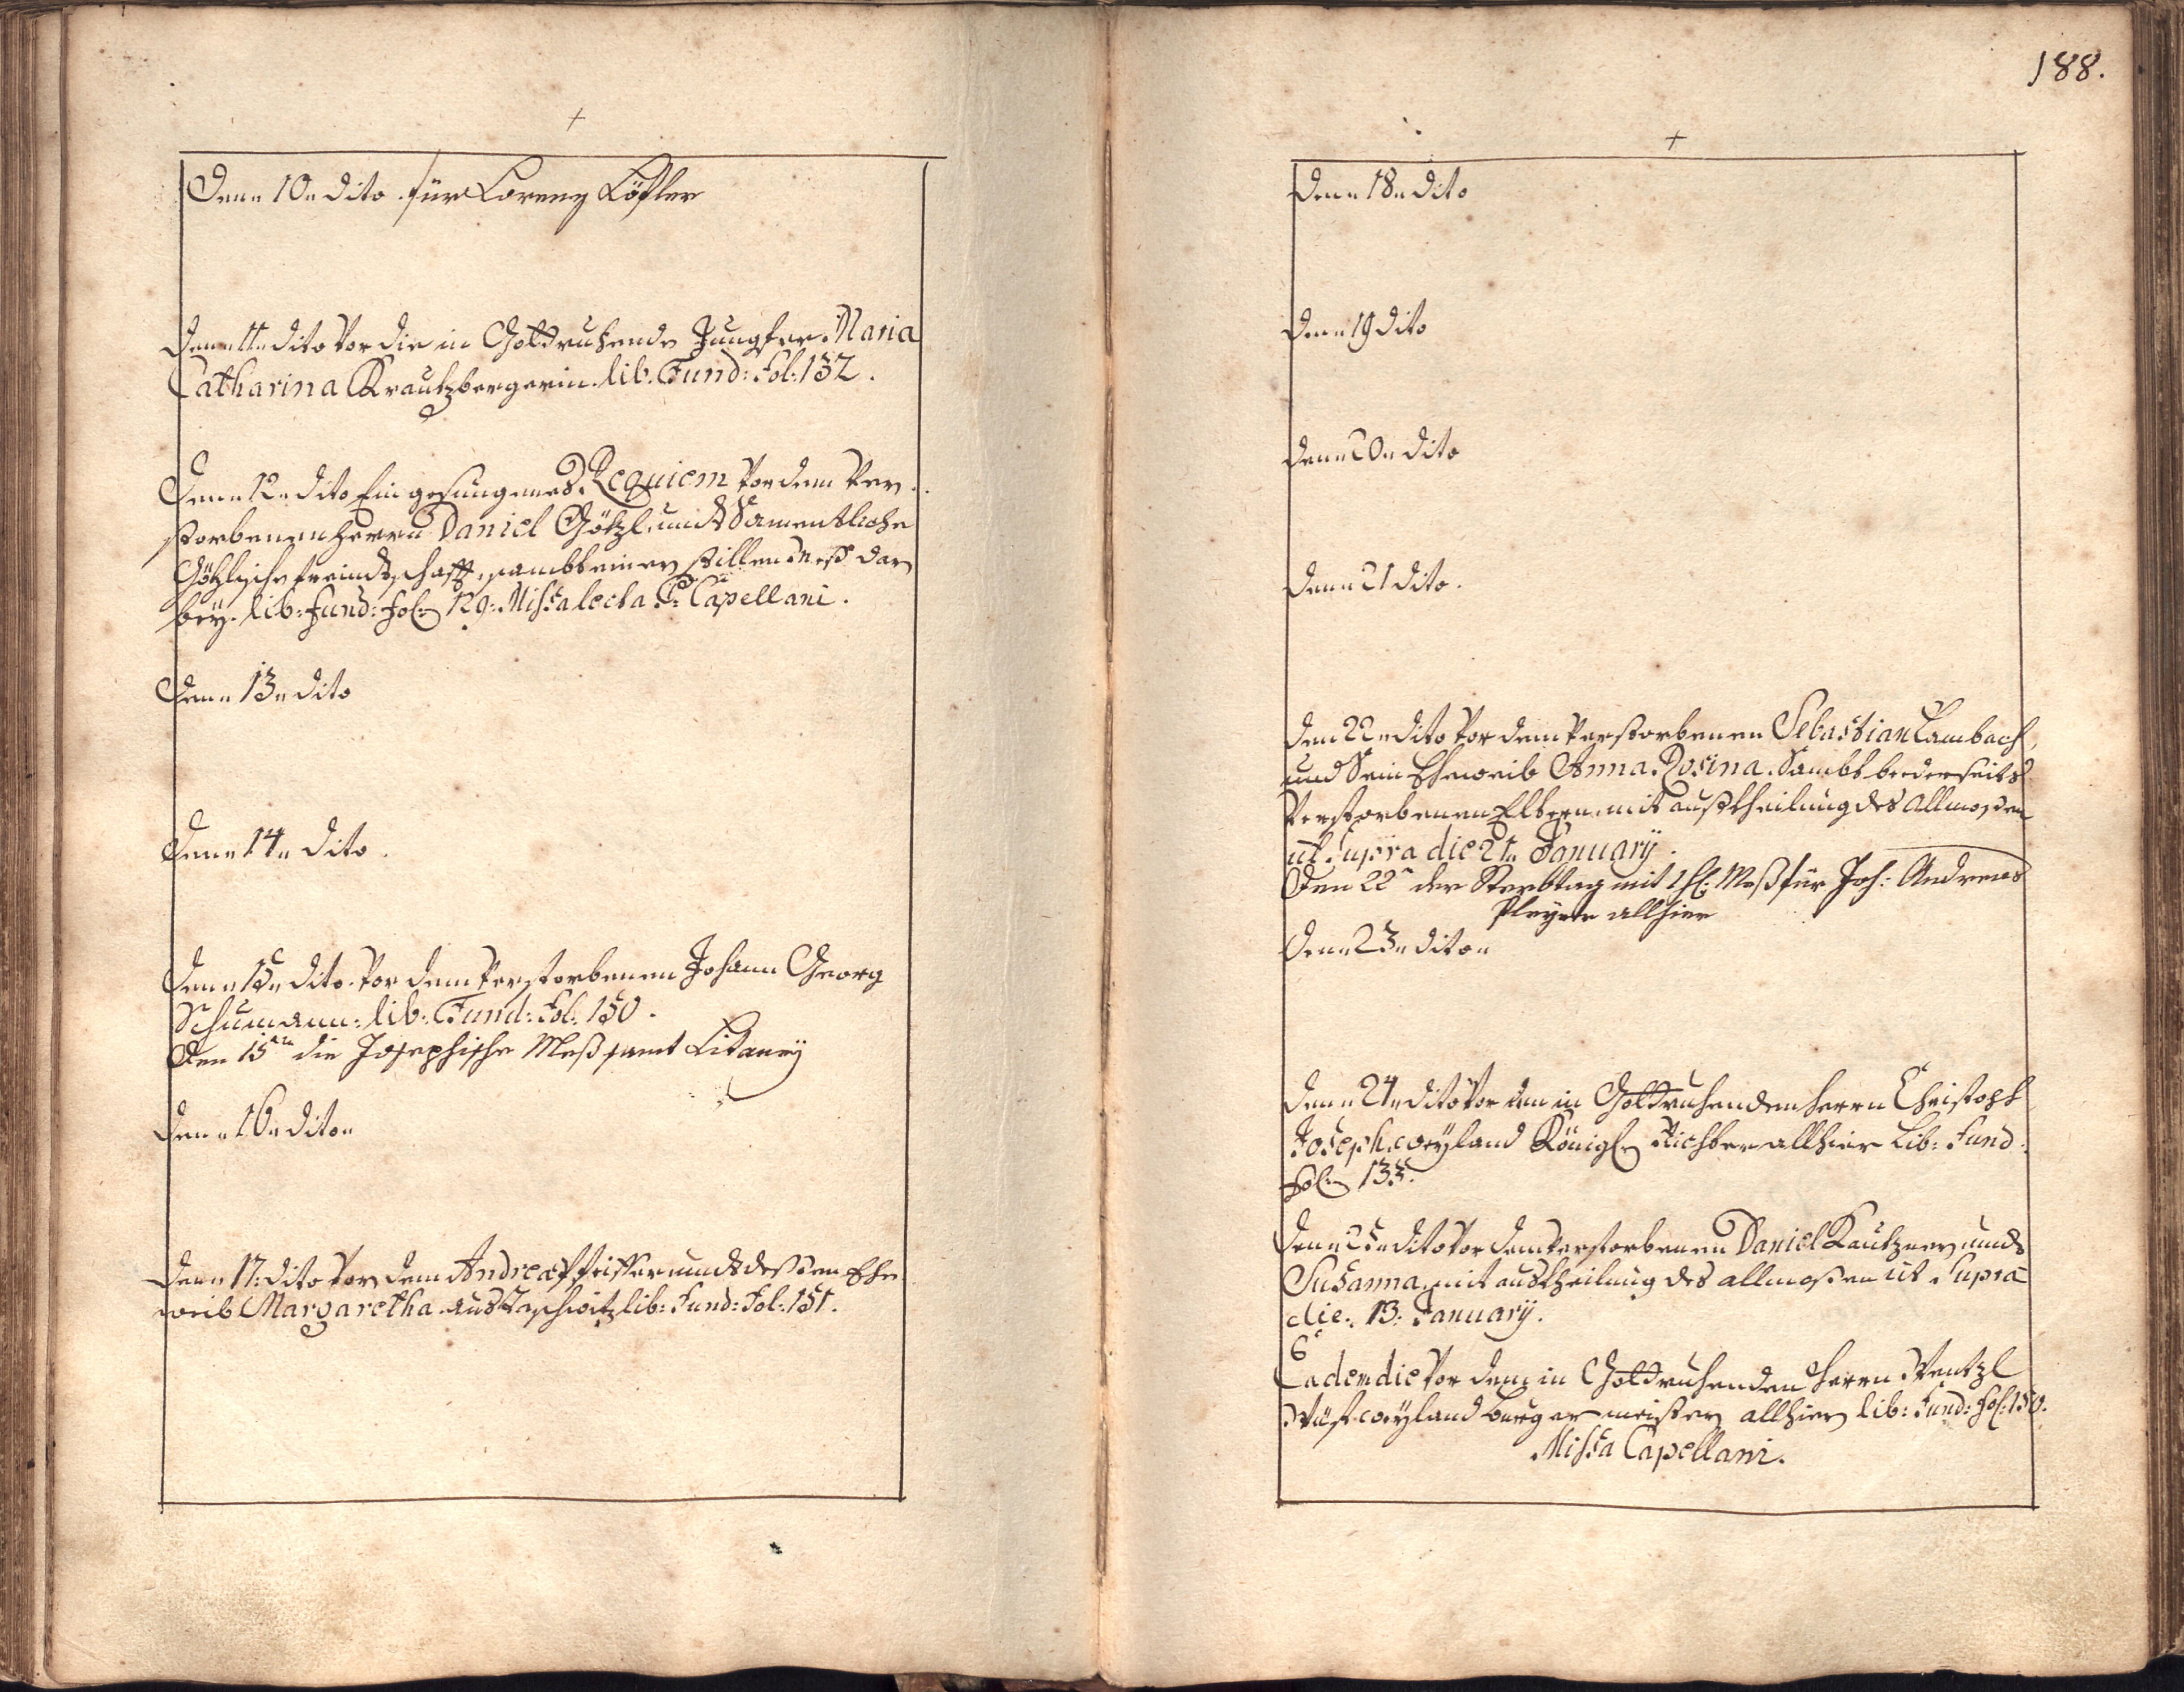 +
Denn 10n dito für Lorenz Löffler
Denn 11n dito vor die in Gottruhende Jungfer Maria
Catharina Krautzbergerin lib. Fund: Fol: 132.
Denn 12n dito Ein gesungenes Requiem vor dem ver
storbenen Herrn Daniel Götzl undt Samentliche
Götzlische freindtschafft, sambt einer stillen Meß dar
bey. lib: Fund: fol: 129: Missa lecta P: Capellani.
Denn 13n dito
Denn 14n dito.
Denn 15n dito vor dem verstorbenen Johann Georg
Schumann: lib: Fund: Fol: 150.
Den 15ten die Josephische Meß samt Litaney
Denn 16n diton
Denn 17: dito vor dem Andreas Pfeiffer undt dessen Ehe
weib Margaretha aus lib: Fund: Fol: 151.
188.
+
Denn 18n dito
Denn 19 dito
Denn 20n dito
Denn 21 dito.
Den 22n dito vor dem verstorbenen Sebastian Lambach,
und Sein Eheweib Anna Rosina. Sambt bederseits
verstorbenen Eltern, mit außtheilung des Allmosen
ut Supra die 21n January.
Den 22n der Sterbtag mit 1 hl: Meß für Joh: Andreas
Pleyer allhier
Denn 23n diton
Denn 24n dito vor den in Gottruhenden Herrn Christoph
Joseph, weyland Königl Richter allhier Lib: Fund:
Fol: 133.
Denn 25n dito vor dem verstorbenen Daniel Kautzner undt
Susanna, mit austheilung des allmosen ut Supra
die. 13: January.
Eadem die vor dem in Gottruhenden Herrn Wentzl
weyland burgermeister allhier lib: Fund: fol: 150.
Missa Capellani.